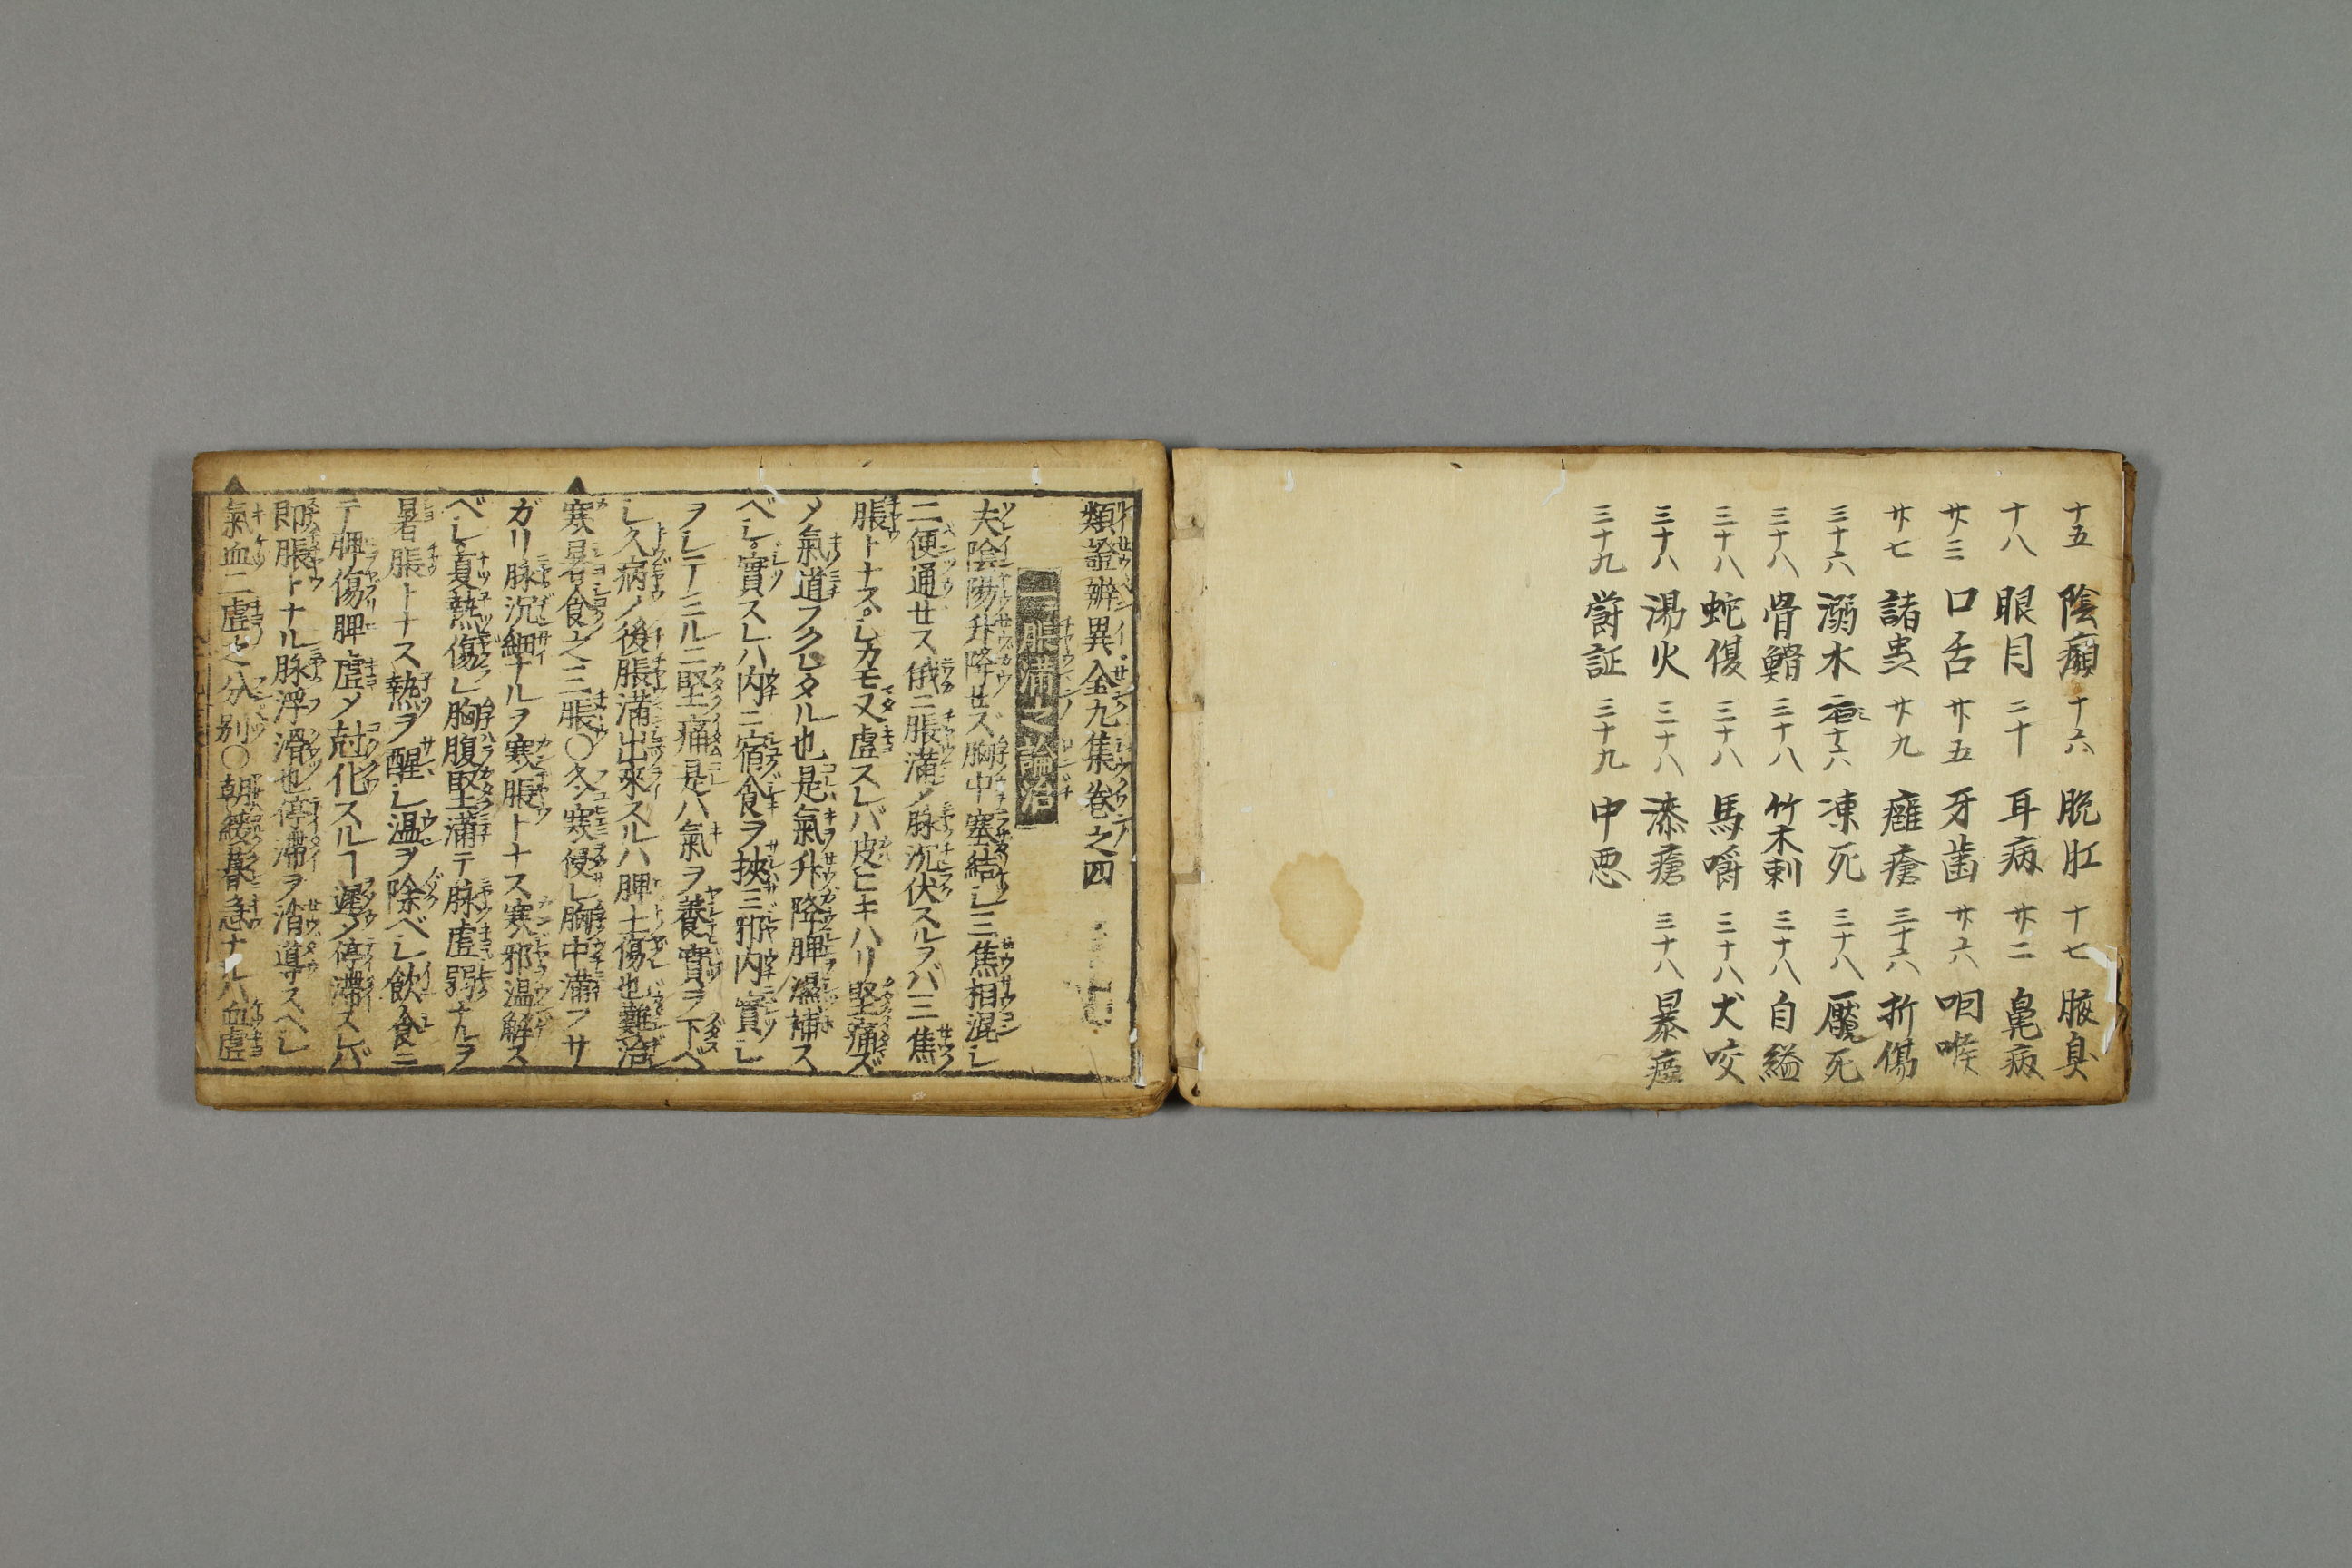 十五 陰㿗 十六 脱肛 十七 腋臭
十八 眼目 二十 耳病 廿二 鼻病
廿三 口舌 廿五 牙齒 廿六 咽喉
廿七 諸䖝 廿九 癰瘡 三十六 折傷
三十六 溺水 三十六 凍死 三十八 魘死
三十八 骨鯁 三十八 竹木刺 三十八 自縊
三十八 蛇傷 三十八 馬嚼 三十八 犬咬
三十八 湯火 三十八 漆瘡 三十八 暴瘂
三十九 欝証 三十九 中悪
類證辨異全九集巻之四
一脹滿之論治
夫陰陽升降セズ胸中塞結シ三焦相混シ
二便通セス俄ニ脹滿ノ脉沉伏スルヲバ三焦
脹トナス○シカモ又虚スレバ皮ヒキハリ堅痛ズ
メ氣道フクレタル也是ハ氣升降脾濕補ス
ベシ○實スレハ内ニ宿食ヲ挾ミ邪内實シ
ヲシテミルニ堅痛是ハ氣ヲ養實ヲ下ベ
シ久病ノ後脹滿出來スルハ脾土傷也難治
寒暑食之三脹○冬ハ寒侵シ胸中滿フサ
ガリ脉沉細ナルヲ寒脹トナス寒邪温解ス
ベシ○夏熱傷シ胸腹堅滿テ脉虚弱ナルヲ
暑脹トナス熱ヲ醒シ温ヲ除ベシ飲食ニ
テ脾傷脾虚メ尅化スルヿ遲メ停滯スレバ
即脹トナル脉浮滑也停滯ヲ消導スヘシ
氣血二虚之分別○朝緩暮急ナルハ血虚